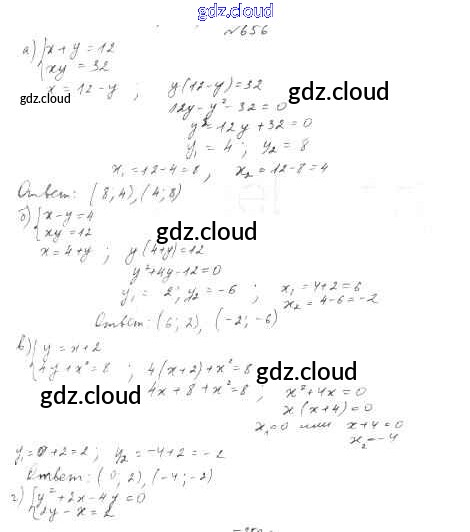 gdz.cloud
№656
а) {x + y = 12
xy = 32
x = 12 - y ; y(12 - y) = 32
gdz.cloud
gdz.cloud
12y - y² - 32 = 0
y² - 12y + 32 = 0
y₁ = 4 ; y₂ = 8
x₁ = 12 - 4 = 8 , x₂ = 12 - 8 = 4
Ответ: (8; 4), (4; 8)
б) {x - y = 4
xy = 12
gdz.cloud
x = 4 + y ; y(4 + y) = 12
y² + 4y - 12 = 0
y₁ = 2; y₂ = -6 ; x₁ = 4 + 2 = 6
x₂ = 4 - 6 = -2
Ответ: (6; 2), (-2; -6)
gdz.cloud
в) {y = x + 2
4y + x² = 8 ; 4(x + 2) + x² = 8
gdz.cloud
gdz.cloud
4x + 8 + x² = 8 , x² + 4x = 0
x(x + 4) = 0
x₁ = 0 или x + 4 = 0
x₂ = -4
y₁ = 0 + 2 = 2 ; y₂ = -4 + 2 = -2
Ответ: (0; 2), (-4; -2)
г) {y² + 2x - 4y = 0
2y - x = 2